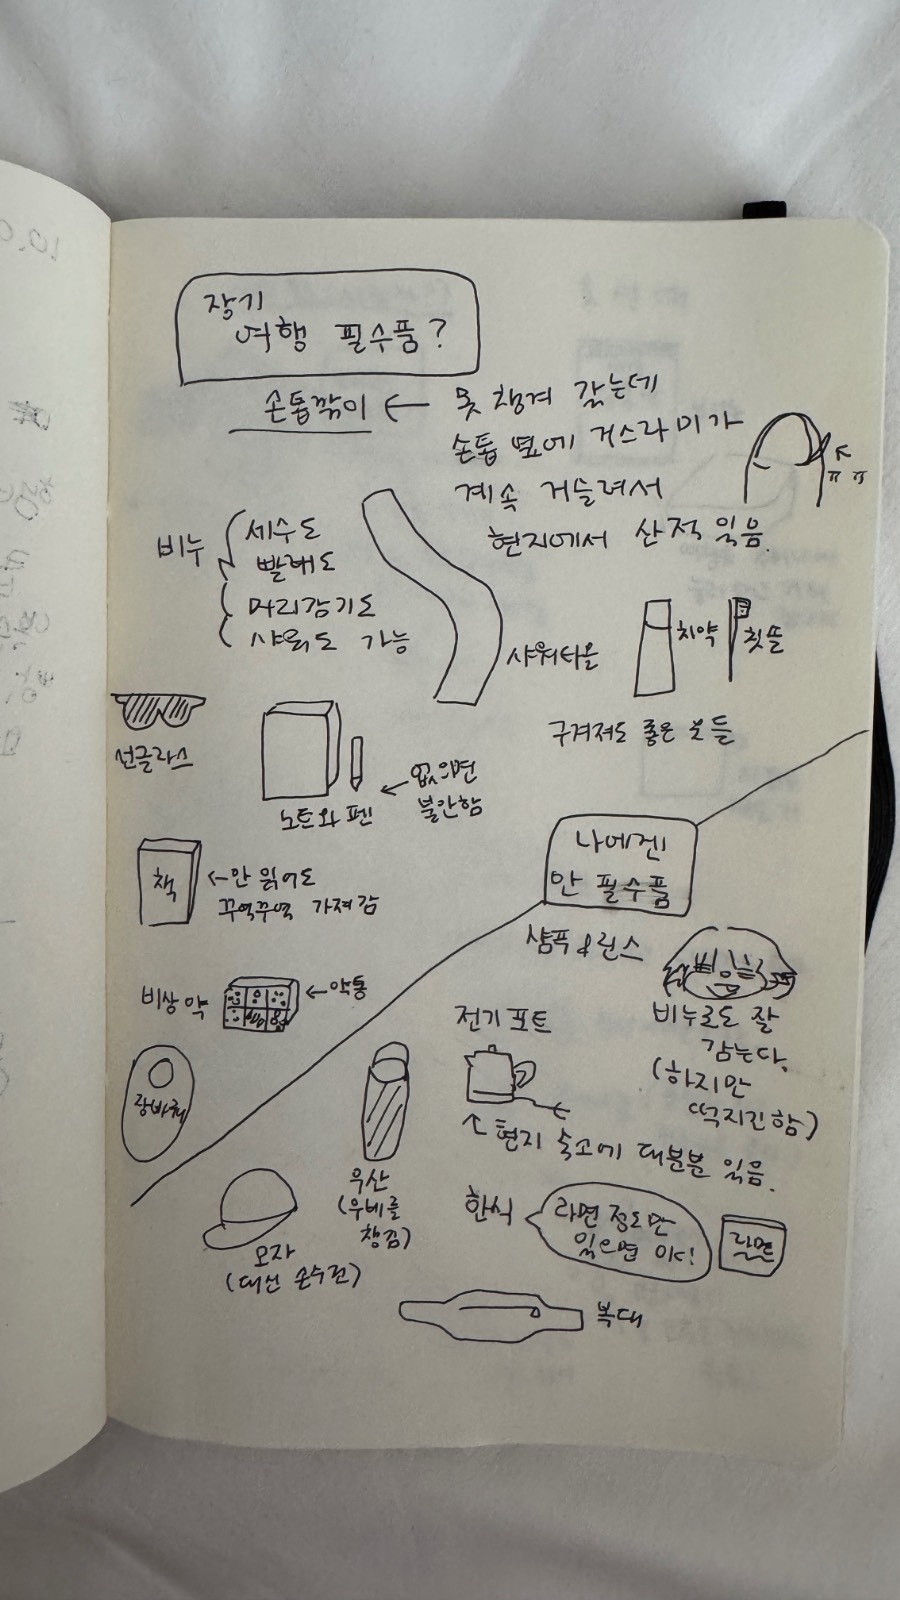 장기
여행 필수품?
손톱깎이 ← 못 챙겨 갔는데
손톱 옆에 거스라미가
계속 거슬려서
현지에서 산적 있음.
ㅠㅠ
비누
세수도
빨래도
머리감기도
샤워도 가능
샤워타올
치약
칫솔
선글라스
노트와 펜
← 없으면
불안함
구겨져도 좋은 옷들
책
← 안 읽어도
꾸역꾸역 가져감
비상약
← 약통
나에겐
안 필수품
샴푸 & 린스
비누로도 잘
감는다.
(하지만
떡지긴 함)
전기 포트
↑ 현지 숙소에 대부분 있음.
우산
(우비를
챙김)
모자
(대신 손수건)
한식
라면 정도만
있으면 OK!
라면
복대